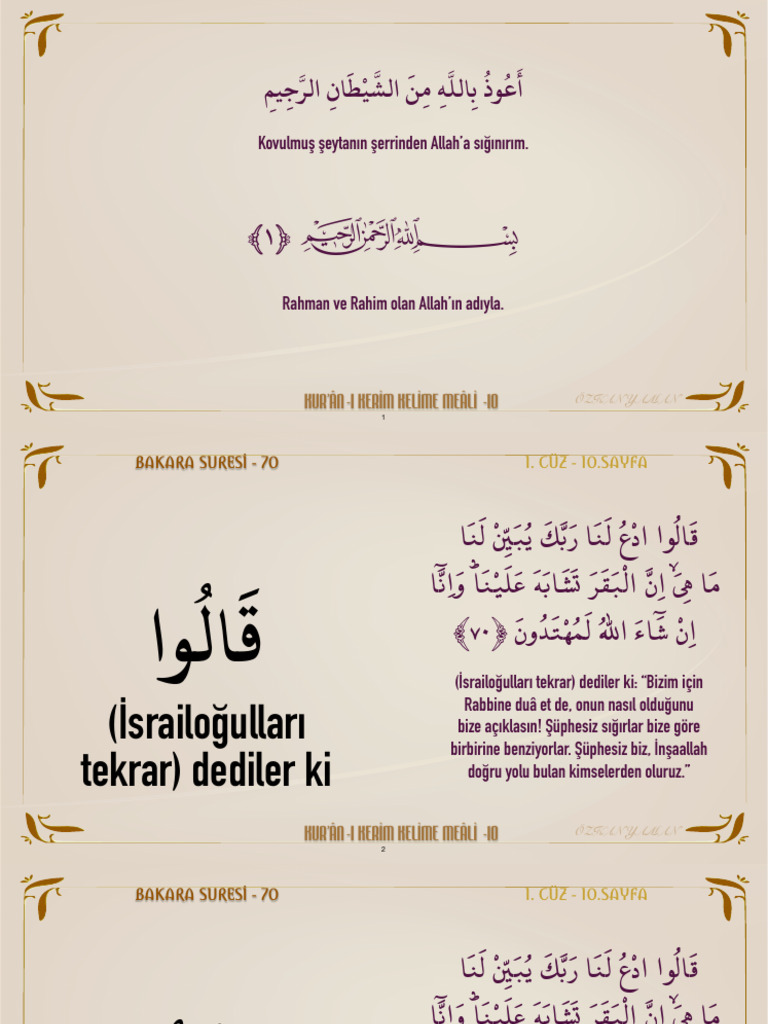 أَعُوذُ بِاللَّهِ مِنَ الشَّيْطَانِ الرَّجِيمِ
Kovulmuş şeytanın şerrinden Allah’a sığınırım.
بِسْمِ اللهِ الرَّحْمٰنِ الرَّحِيمِ ﴿١﴾
Rahman ve Rahim olan Allah’ın adıyla.
KUR'ÂN-I KERİM KELİME MEÂLİ -10
ÖZKAN YAMAN
1
BAKARA SURESİ - 70
1. CÜZ - 10.SAYFA
قَالُوا
(İsrailoğulları
tekrar) dediler ki
قَالُوا ادْعُ لَنَا رَبَّكَ يُبَيِّنْ لَنَا
مَا هِيَۙ اِنَّ الْبَقَرَ تَشَابَهَ عَلَيْنَاۜ وَاِنَّٓا
اِنْ شَٓاءَ اللهُ لَمُهْتَدُونَ ﴿٧٠﴾
(İsrailoğulları tekrar) dediler ki: “Bizim için
Rabbine duâ et de, onun nasıl olduğunu
bize açıklasın! Şüphesiz sığırlar bize göre
birbirine benziyorlar. Şüphesiz biz, İnşaallah
doğru yolu bulan kimselerden oluruz.”
KUR'ÂN-I KERİM KELİME MEÂLİ -10
ÖZKAN YAMAN
2
BAKARA SURESİ - 70
1. CÜZ - 10.SAYFA
قَالُوا ادْعُ لَنَا رَبَّكَ يُبَيِّنْ لَنَا
مَا هِيَۙ اِنَّ الْبَقَرَ تَشَابَهَ عَلَيْنَاۜ وَاِنَّٓا